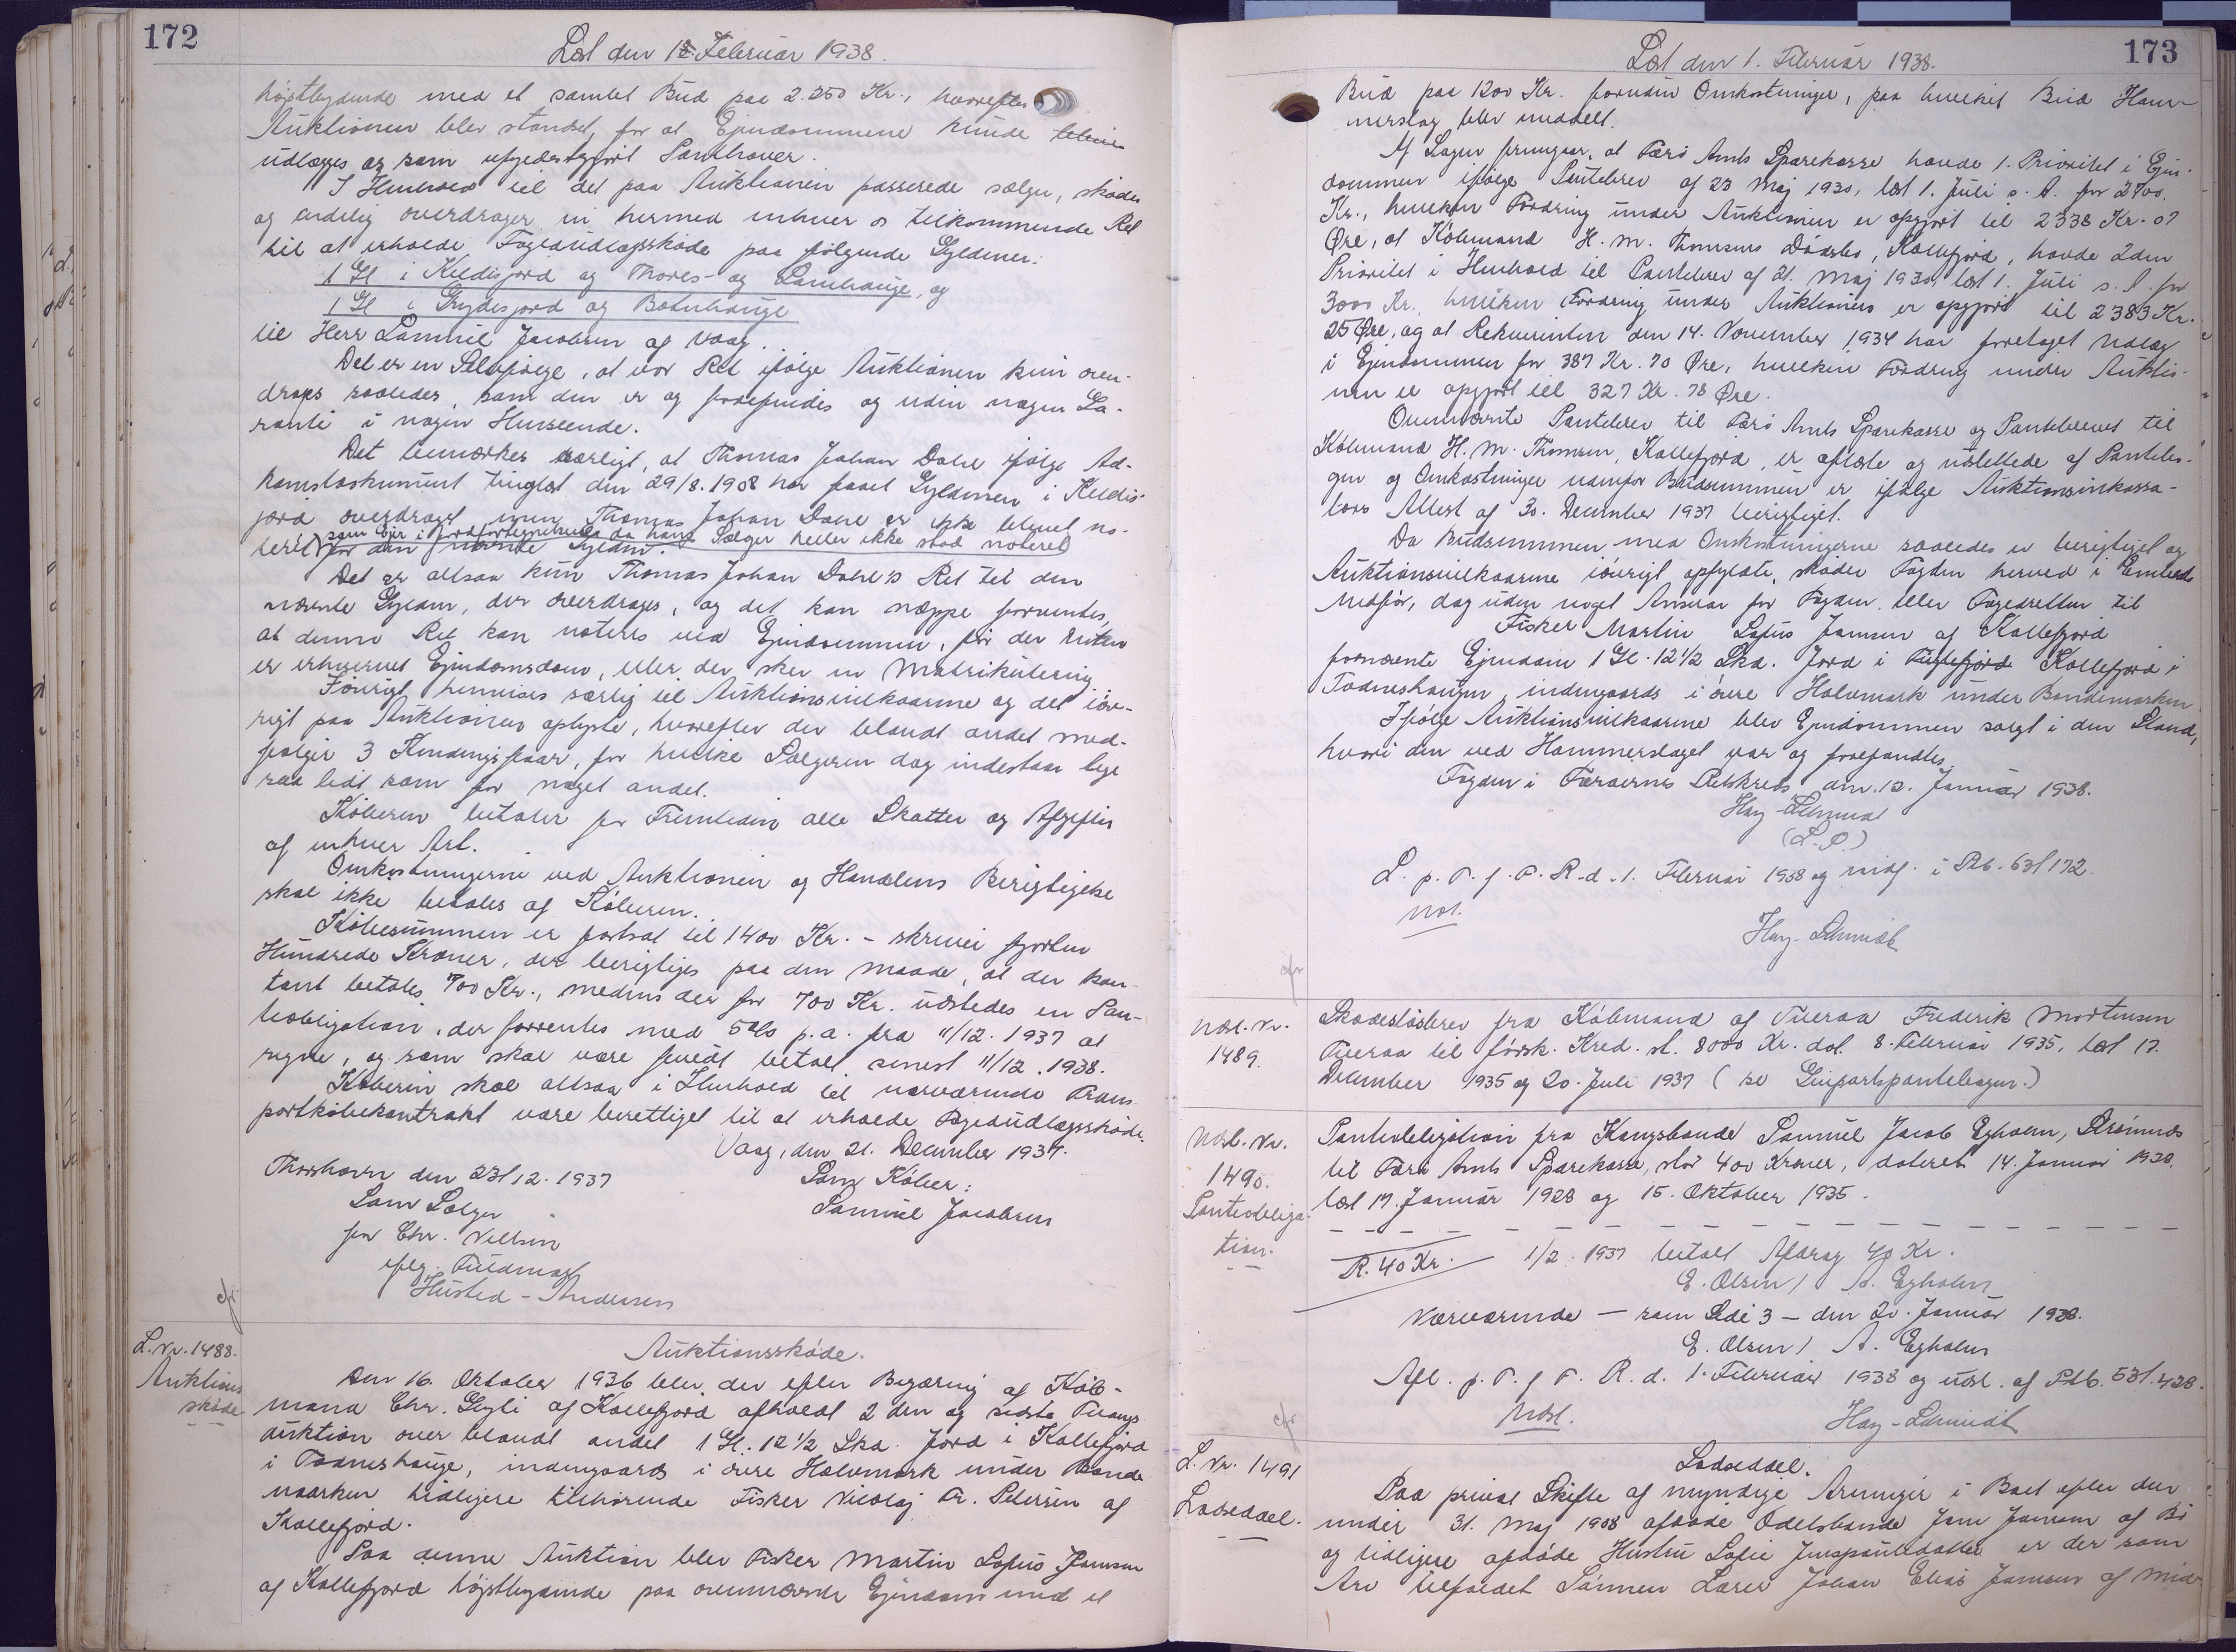 172
Læst den 18. Februar 1938.
højstbydende med et samlet Bud paa 2.250 Kr., hvorefter
Auktionen blev standset, for at Ejendommene kunde
udlægges og som ufyldestgjort Panthaver.
I Henhold til det paa Auktionen passerede sælger, skøder
og endelig overdrager vi hermed enhver os tilkommende Ret
til at erholde Fogedudlægsskøde paa følgende Gyldener:
1 Gl i Keldisfjord og Thores- og Lamhauge, og
1 Gl i Grydesfjord og Botnhauge
til Herr Samuel Jacobsen af Vaag.
Det er en Selvfølge, at vor Ret ifølge Auktionen kun over-
drages saaledes, som den er og forefindes og uden nogen Ga-
ranti i nogen Henseende.
Det bemærkes særligt, at Thomas Johan Dahl ifølge Ad-
komstdokument tinglæst den 29/8. 1908 har faaet Gyldenen i Keldis-
fjord overdraget, men Thomas Johan Dahl er ikke blevet no-
teret som Ejer i Jordfortegnelsen, da hans Sælger heller ikke stod noteret
for den nævnte Gylden.
Det er altsaa kun Thomas Johan Dahl's Ret til den
nævnte Gylden, der overdrages, og det kan næppe forventes,
at denne Ret kan noteres ved Ejendommen, før der enten
er erhvervet Ejendomsdom, eller der sker en Matrikulering.
Iøvrigt henvises særlig til Auktionsvilkaarene og det iøv-
rigt paa Auktionen oplyste, hvorefter der blandt andet med-
følger 3 Kindingsfaar, for hvilke Sælgeren dog indestaar lige
saa lidt som for noget andet.
Køberen betaler for Fremtiden alle Skatter og Afgifter
af enhver Art.
Omkostningerne ved Auktionen og Handelens Berigtigelse
skal ikke betales af Køberen.
Købesummen er fastsat til 1400 Kr. - skriver fjorten
Hundrede Kroner, der berigtiges paa den Maade, at der kon-
tant betales 700 Kr., medens der for 700 Kr. udstedes en Pan-
teobligation, der forrentes med 5% p.a. fra 11/12. 1937 at
regne, og som skal være fuldt betalt senest 11/12. 1938.
Køberen skal altsaa i Henhold til nærværende Trans-
portkøbekontrakt være berettiget til at erholde Fogedudlægsskøde.
Vaag, den 21. December 1937.
Thorshavn den 23/12. 1937
Som Køber:
Som Sælger
Samuel Jacobsen
for Chr. Nielsen
iflg. Fuldmagt
Husted-Andersen
cfr
L. Nr. 1488.
Auktions
skøde
Auktionsskøde.
Den 16. Oktober 1936 blev der efter Begæring af Køb-
mand Chr. Glyli af Kollefjord afholdt 2den og sidste Tvangs
auktion over blandt andet 1 Gl. 12 1/2 Skd. Jord i Kollefjord
i Todneshauge, indengaards i øvre Halvmark under Bonde
maarken tidligere tilhørende Fisker Nicolaj Fr. Petersen af
Kollefjord.
Paa denne Auktion blev Fisker Martin Sofus Jensen
af Kollefjord højstbydende paa ovennævnte Ejendom med et
173
Læst den 1. Februar 1938.
Bud paa 1200 Kr. foruden Omkostninger, paa hvilket Bud Ham-
merslag blev meddelt.
Af Sagen fremgaar, at Færø Amts Sparekasse havde 1. Prioritet i Ejen-
dommen ifølge Pantebrev af 23 Maj 1930, læst 1. Juli s. A. for 2700.
Kr., hvilken Fordring under Auktionen er opgjort til 2338 Kr. 07
Øre, at Købmand H. M. Thomsens Dødsbo, Kollefjord, havde 2den
Prioritet i Henhold til Pantebrev af 21. Maj 1930 læst 1. Juli s. A. for
3000 Kr., hvilken Fordring under Auktionen er opgjort til 2383 Kr.
25 Øre, og at Rekvirenten den 14. November 1934 har foretaget Udlæg
i Ejendommen for 387 Kr. 70 Øre, hvilken Fordring under Auktio-
nen er opgjort til 327 Kr. 78 Øre.
Ovennævnte Pantebrev til Færø Amts Sparekasse og Pantebrevet til
Købmand H. M. Thomsen, Kollefjord, er aflæste og udslettede af Pantebø-
gen og Omkostninger udenfor Budsummen er ifølge Auktionsinkassa-
tors Attest af 30. December 1937 berigtiget.
Da Budsummen med Omkostningerne saaledes er berigtiget og
Auktionsvilkaarene iøvrigt opfyldte, skøder Fogden herved i Embeds
Medfør, dog uden noget Ansvar for Fogden eller Fogedretten til
Fisker Martin Sofus Jensen af Kollefjord
fornævnte Ejendom 1 Gl. 12 1/2 Skd. Jord i Kollefjord i
Todneshaugen, indengaards i øvre Halvmark under Bondemarken.
Ifølge Auktionsvilkaarene blev Ejendommen solgt i den Stand,
hvori den ved Hammerslaget var og forefandtes.
Fogden i Færøernes Retskreds, den 12. Januar 1938.
Hay-Schmidt
(L.S.)
L. p. T. f. F. R. d. 1. Februar 1938 og indf. i Ptb. 63/172.
Udsl.
Hay-Schmidt
cfr
Udsl. Nr.
1489.
Skadesløsbrev fra Købmand af Tveraa Frederik Mortensen
Tveraa til førsk. Kred. st. 8000 Kr. dat. 8. Februar 1935, læst 17.
December 1935 og 20. Juli 1937 (se Skibspantebogen.)
Udsl. Nr.
1490.
Panteobliga-
tion.
Panteobligation fra Kongsbonde Samuel Jacob Egholm, Strømnæs
til Færø Amts Sparekasse, stor 400 Kroner, dateret 14. Januar 1928.
læst 17. Januar 1928 og 15. Oktober 1935.
R. 40 Kr. 1/2. 1937 betalt Afdrag 40 Kr.
E. Olsen / A. Egholm
Nærværende - som Side 3 - den 20. Januar 1938.
E. Olsen / A. Egholm
Afl. p. T. f. F. R. d. 1. Februar 1938 og udsl. af Ptb. 53/428.
Udsl.
Hay-Schmidt
cfr
L. Nr. 1491
Lodseddel.
Lodseddel.
Paa privat Skifte af myndige Arvinger i Boet efter den
under 31. Maj 1908 afdøde Odelsbonde Jens Jensen af Bø
og tidligere afdøde Hustru Sofie Jenspoulsdatter er der som
Arv tilfaldet Sønnen Lærer Johan Elias Jensen af Mid-